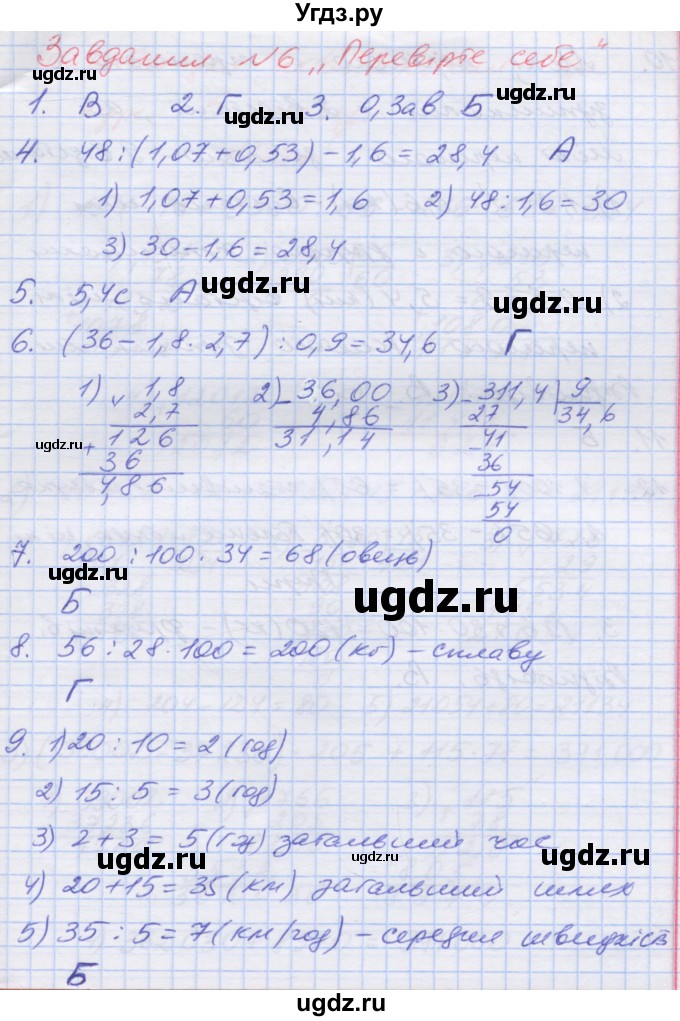 Угдз.ру
Завдання №6 „Перевірте себе"
ugdz.ru ugdz.ru
1. В 2. Г 3. 0,3ав Б
ugdz.ru
4. 48 : (1,07 + 0,53) - 1,6 = 28,4 А
1) 1,07 + 0,53 = 1,6 2) 48 : 1,6 = 30
3) 30 - 1,6 = 28,4
ugdz.ru
5. 5,4с А
ugdz.ru
6. (36 - 1,8 · 2,7) : 0,9 = 34,6 Г
ugdz.ru
1) 1,8 2) - 36,00 3) - 311,4 | 9
2,7 4,86 27 34,6
+ 126 31,14 - 41
36 36
4,86 - 54
54
0
ugdz.ru ugdz.ru
7. 200 : 100 · 34 = 68 (овець)
ugdz.ru
Б
ugdz.ru
8. 56 : 28 · 100 = 200 (кг) - сплаву
ugdz.ru
Г
ugdz.ru
9. 1) 20 : 10 = 2 (год)
2) 15 : 5 = 3 (год)
ugdz.ru
3) 2 + 3 = 5 (год) загальний час
ugdz.ru
4) 20 + 15 = 35 (км) загальний шлях
5) 35 : 5 = 7 (км/год) - середня швидкість
ugdz.ru
Б
ugdz.ru